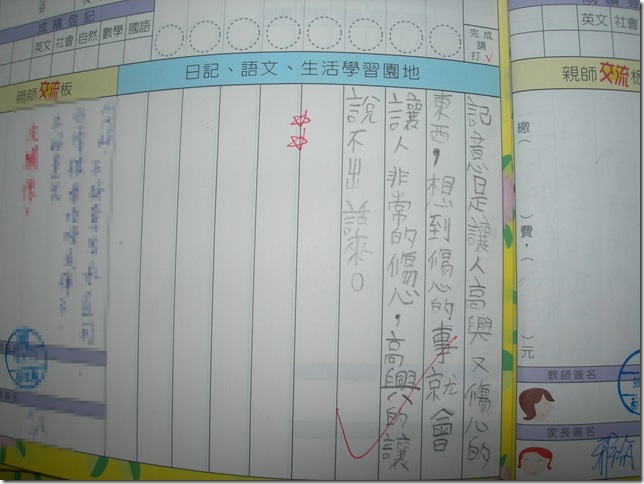 成績登記
英文 社會 自然 數學 國語
完成
請
打√
日記、語文、生活學習園地
記意是讓人高興又傷心的
東西，想到傷心的事就會
讓人非常的傷心，高興的讓
說不出話來。
親師交流板
英文 社會
親師交流板
繳（ ）費，（ ）元
教師簽名
家長簽名